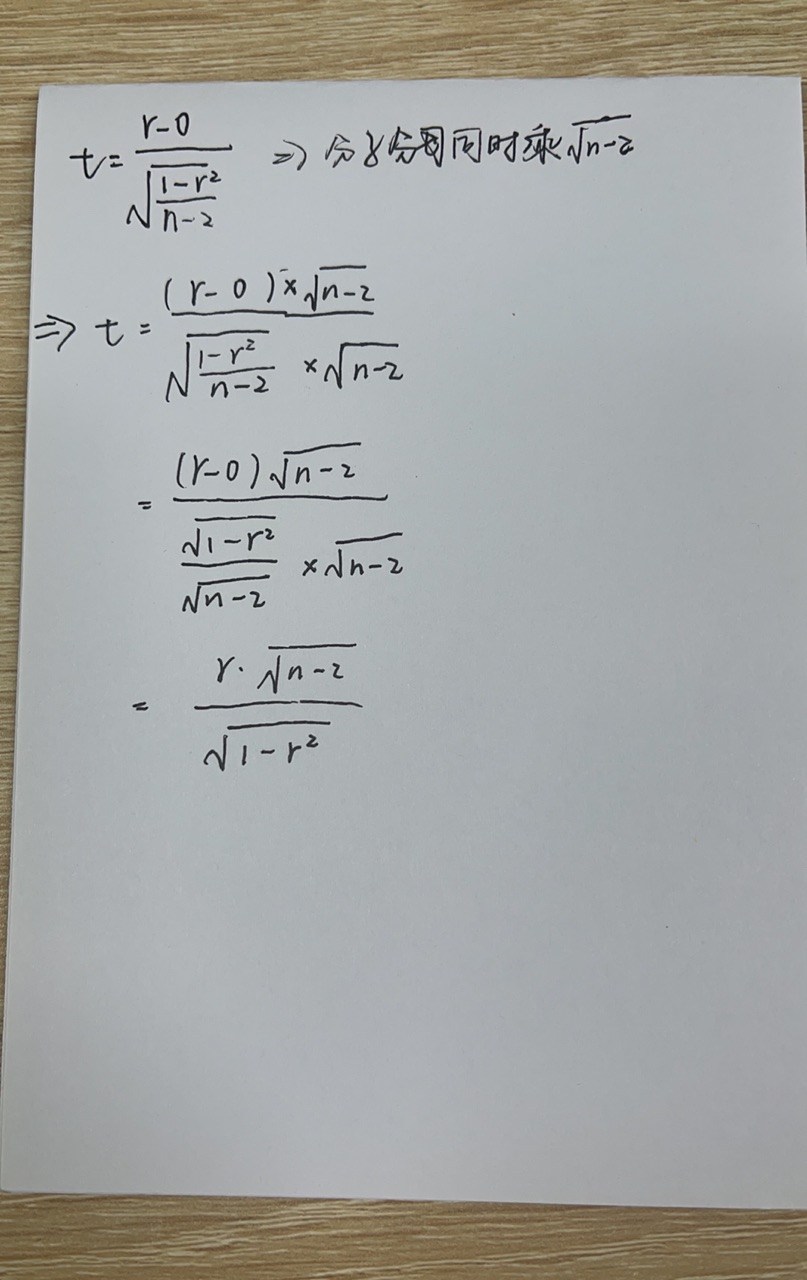 t = (r-0)/√((1-r²)/(n-2)) ⇒ 分子分母同时乘√(n-2)
⇒ t = ((r-0)×√(n-2))/(√((1-r²)/(n-2)) ×√(n-2))
= ((r-0)√(n-2))/((√(1-r²)/√(n-2)) ×√(n-2))
= (r·√(n-2))/√(1-r²)